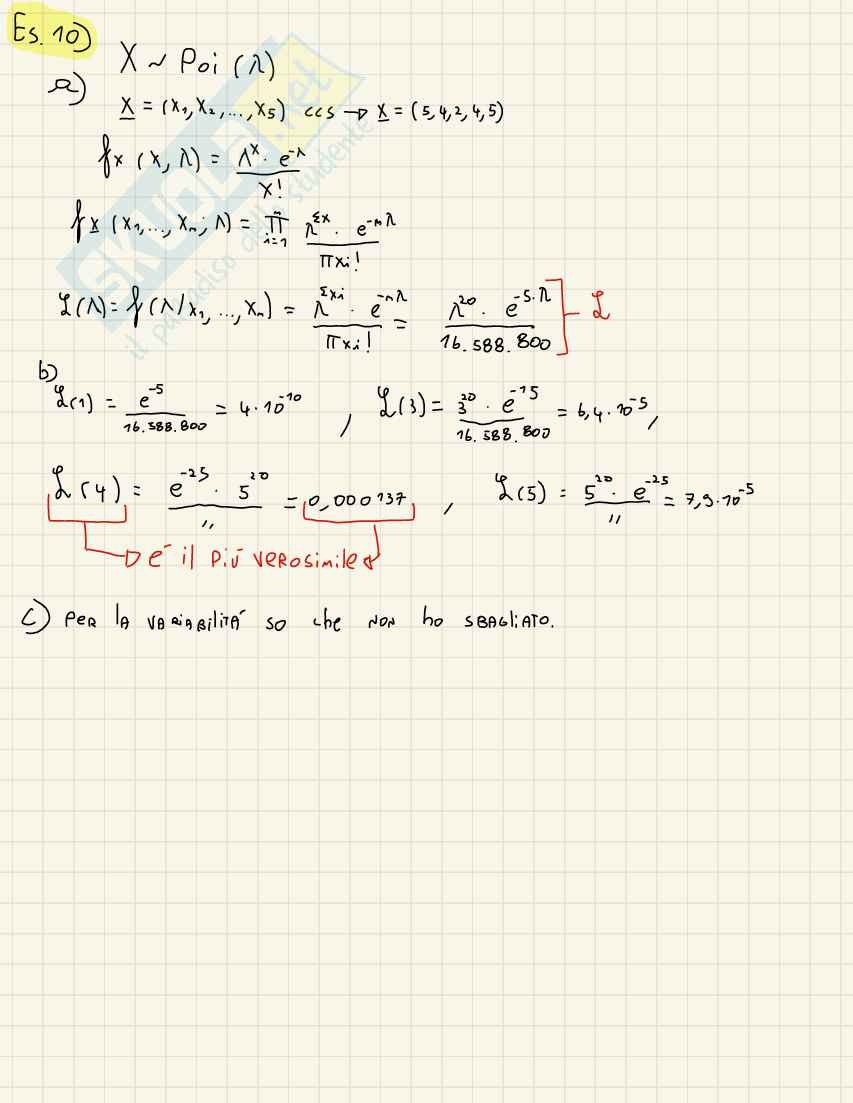 Es. 10)
a) X ~ Poi (λ)
X = (X₁, X₂, ..., X₅) ccs → x = (5, 4, 2, 4, 5)
fx (x, λ) = λˣ · e^-λ / x!
fx (x₁, ..., xₙ; λ) = ∏ i=1 n λ^Σx · e^-nλ / πxi!
L(λ) = f(λ/x₁, ..., xₙ) = λ^Σxi · e^-nλ / πxi! = λ^20 · e^-5·λ / 16.588.800 L
b)
L(1) = e^-5 / 16.588.800 = 4·10^-10 , L(3) = 3^20 · e^-15 / 16.588.800 = 6,4·10^-5,
L(4) = e^-25 · 5^20 / " = 0,000137 , L(5) = 5^20 · e^-25 / " = 7,9·10^-5
è il più verosimile
c) Per la variabilità so che non ho sbagliato.
SKUOLA.net
il paradiso dello studente